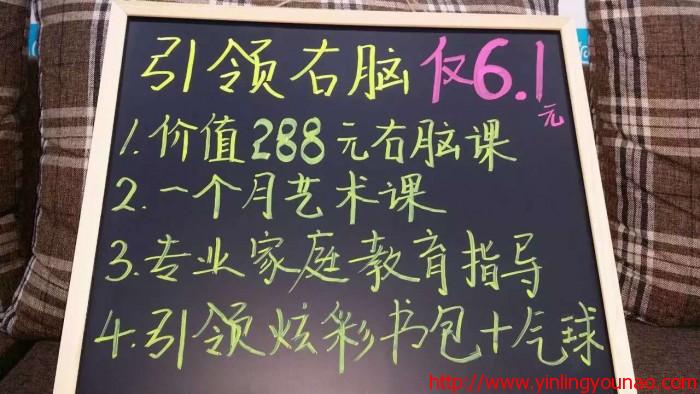 引领右脑 仅6.1元
1.价值288元右脑课
2.一个月艺术课
3.专业家庭教育指导
4.引领炫彩书包+气球
http://www.yinlingyounao.com